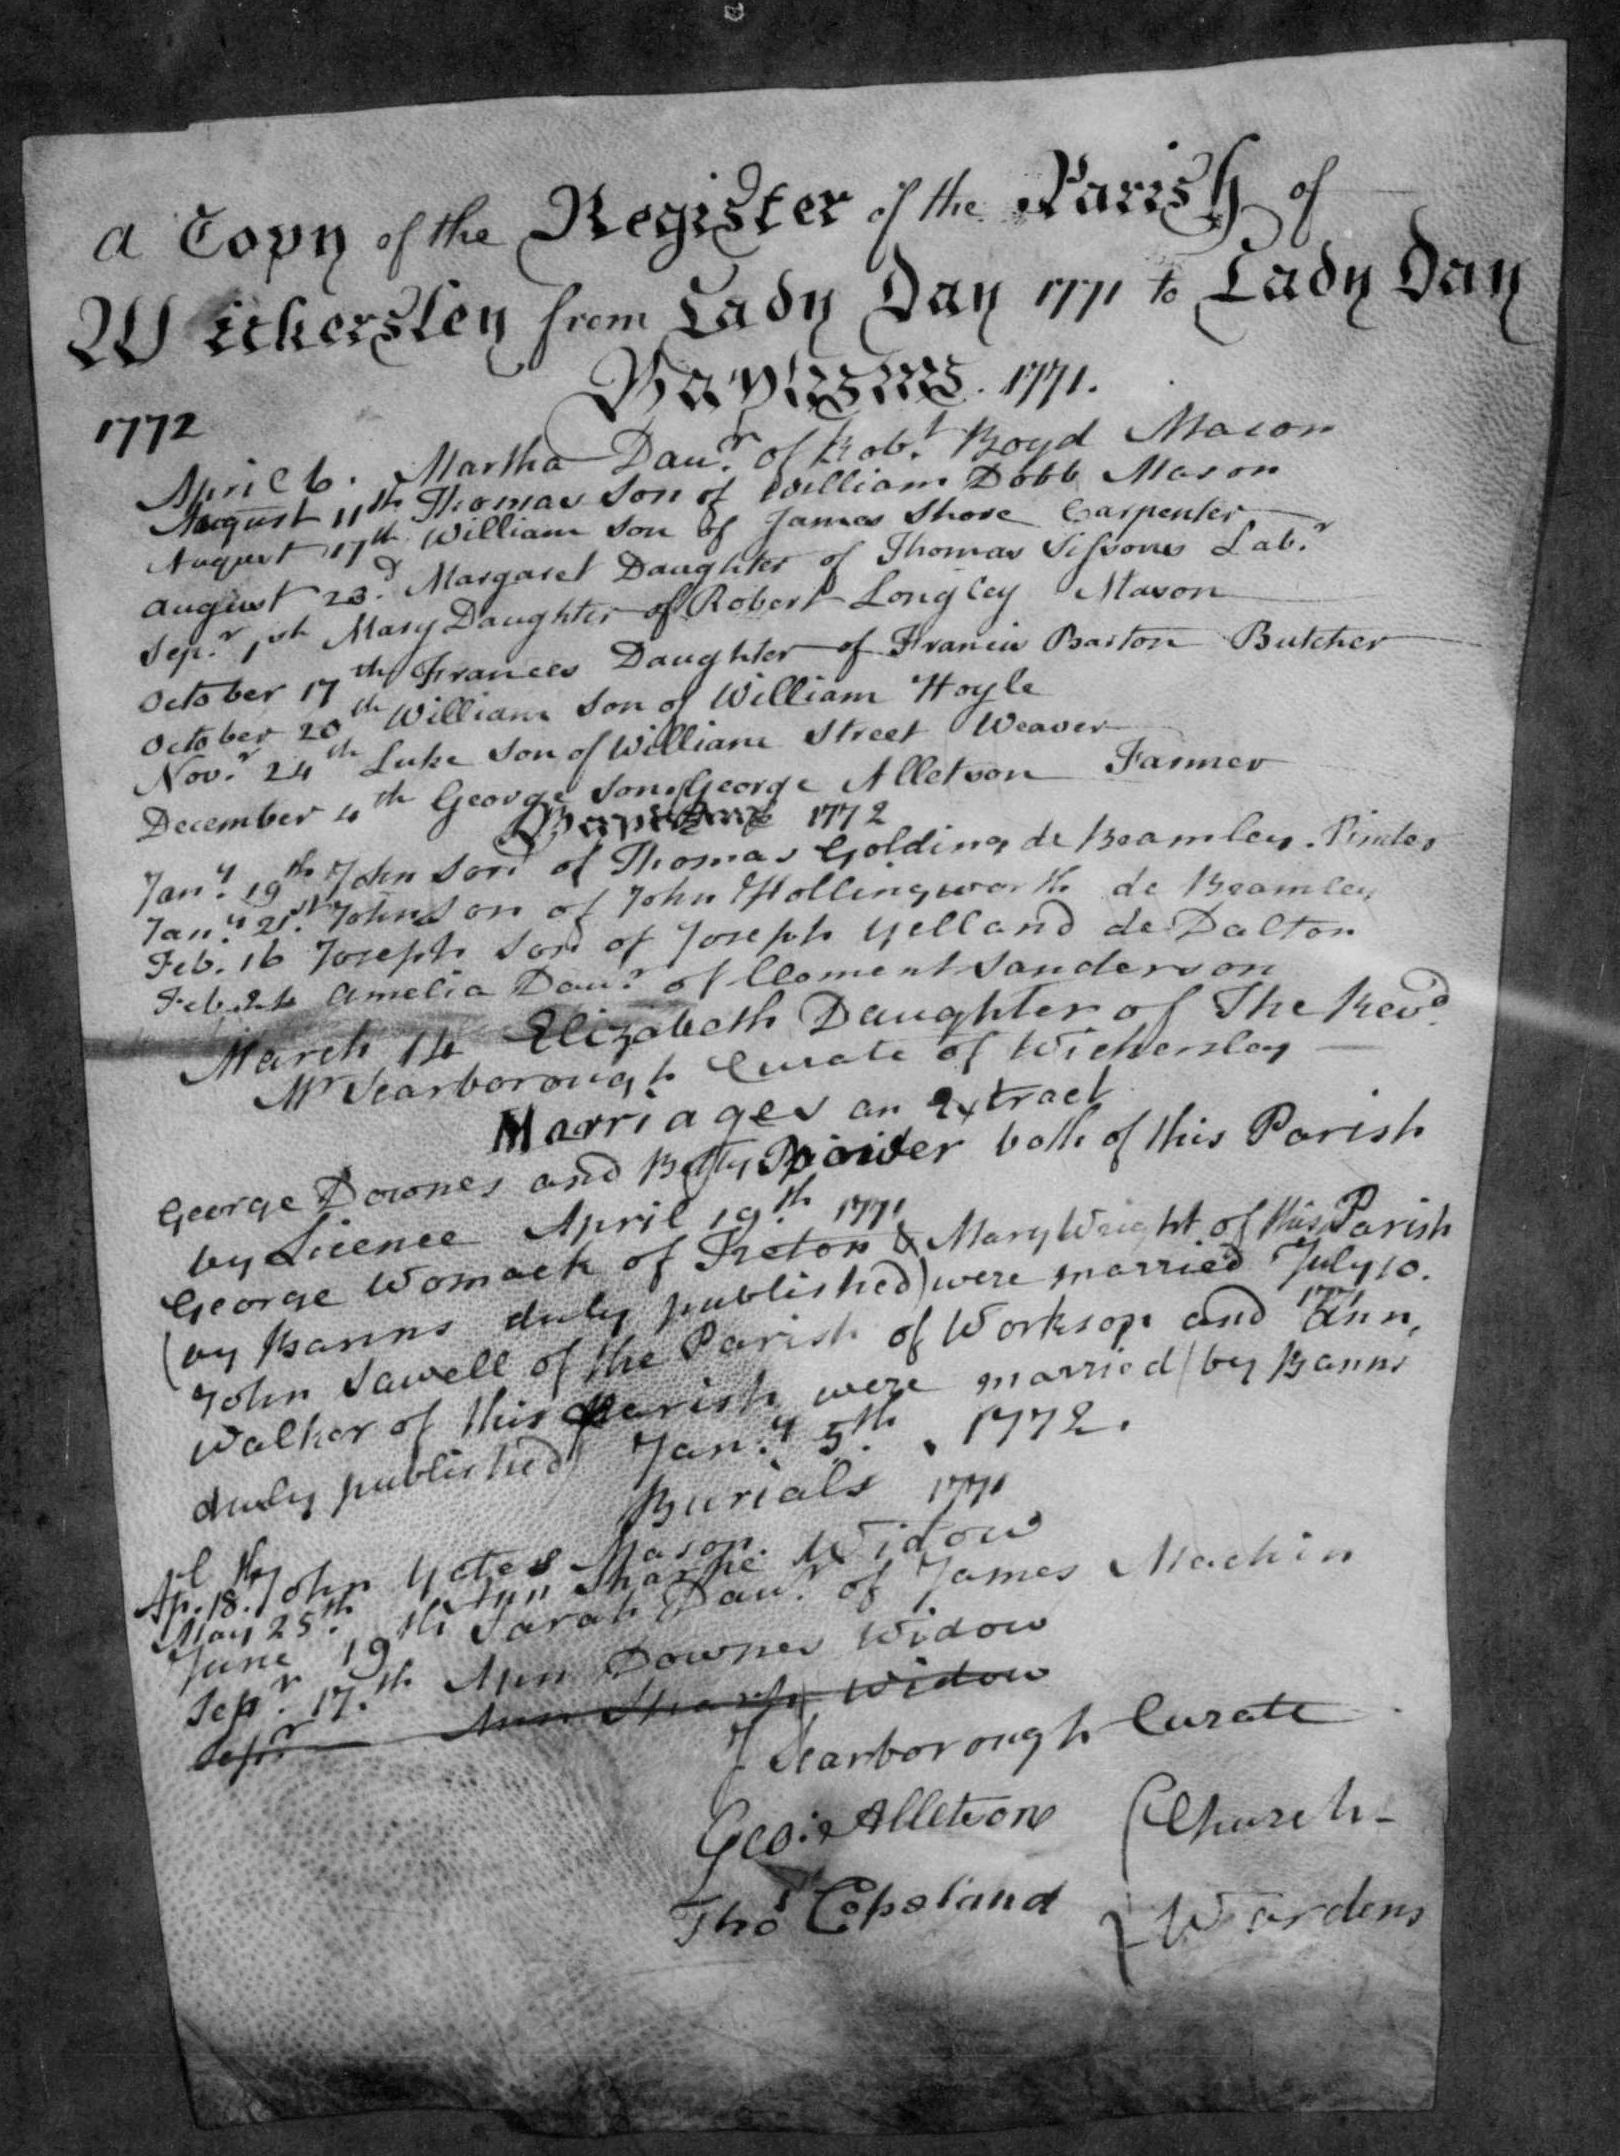 A Copy of the Register of the Parish of
Wickersley from Lady Day 1771 to Lady Day
1772 Baptisms. 1771.
April 6. Martha Daur. of Robt. Boyd Mason
August 11th Thomas Son of William Dobb Mason
August 17th William Son of James Shore Carpenter
August 23d. Margaret Daughter of Thomas Sissons Labr.
Sepr. 1st Mary Daughter of Robert Longley Mason
October 17th Frances Daughter of Francis Barton Butcher
October 20th William Son of William Hoyle
Novr. 24th Luke Son of William Street Weaver
December 4th George Son of George Alletson Farmer
Baptisms 1772
Jany. 19th John Son of Thomas Golding de Beamley. Pinder
Jany. 21st. John Son of John Hollingworth de Beamley
Feb. 16 Joseph Son of Joseph Yelland de Dalton
Feb. 24 Amelia Daur. of Clement Sanderson
March 14 Elizabeth Daughter of The Revd.
Mr Scarborough Curate of Wickersley
Marriages an Extract
George Downes and Betty both of this Parish
by Licence April 19th. 1771
George Womack of Treton & Mary Wright of this Parish
(by Banns duly published) were married July 10.
1771
John Sawell of the Parish of Worksop and Ann,
Walker of this Parish were married (by Banns
duly published) Jany. 5th. 1772.
Burials 1771
Apl. 18th. John Yates Mason.
May 25th. Ann Sharpe Widow
June 19th Sarah Daur. of James Machin
Sepr. 17th Ann Downes Widow
Sepr Ann Sharp Widow
J Scarborough Curate
Geo: Alletson Church-
Thos Copeland Wardens